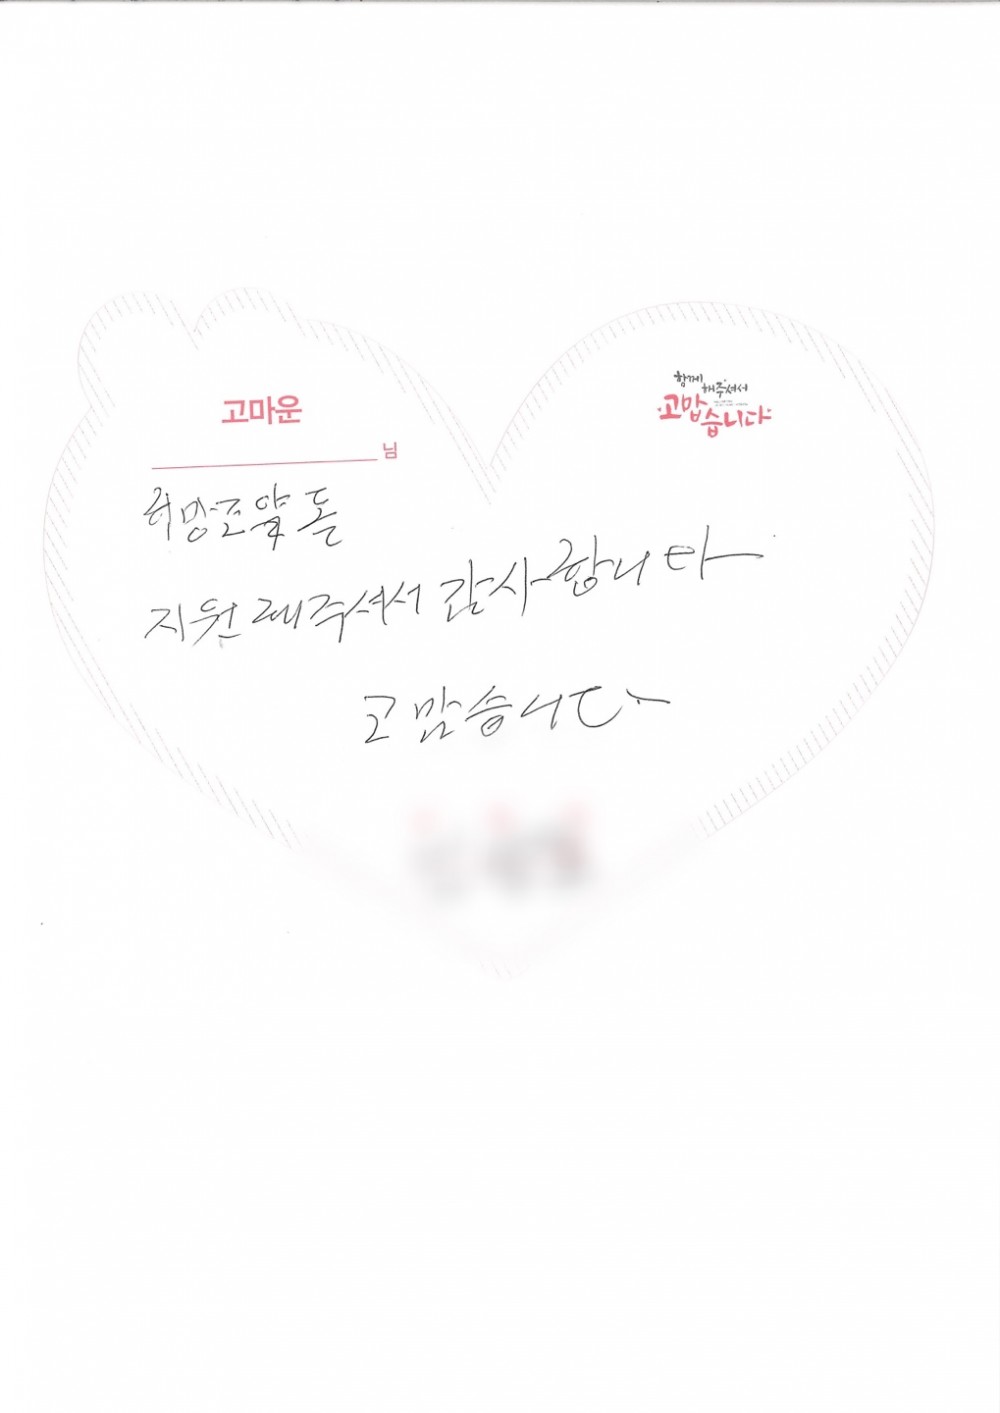 고마운
님
희망조약돌
지원해주셔서 감사합니다
고맙습니다
함께
해주셔서
고맙습니다